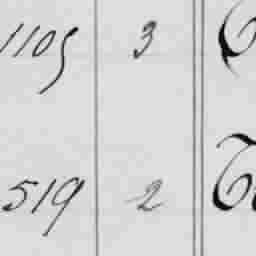 1105 3
519 2